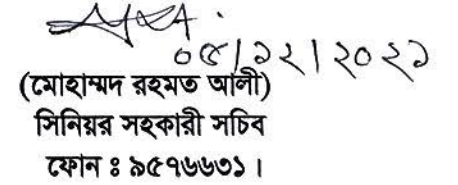 ০৫/১২/২০২১
(মোহাম্মদ রহমত আলী)
সিনিয়র সহকারী সচিব
ফোন ঃ ৯৫৭৬৬৩১।